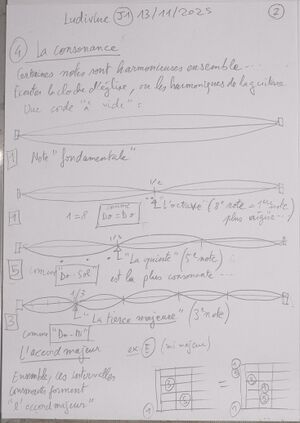 Ludivine J1 13/11/2025 2
4 La consonance
Certaines notes sont harmonieuses ensemble...
Ecouter la cloche d'église, ou les harmoniques de la guitare
Une corde "à vide" :
1 Note "fondamentale"
1/2
1 1=8 comme Do=Do "L'octave" (8e note = 1ère note)
plus aiguë...
5 comme "Do-Sol" "La quinte" (5e note)
est la plus consonante...
3 "La tierce majeure" (3e note)
comme "Do-Mi"
L'accord majeur ex: E (mi majeur)
Ensemble, ces intervalles
consonants forment
"l'accord majeur"
=